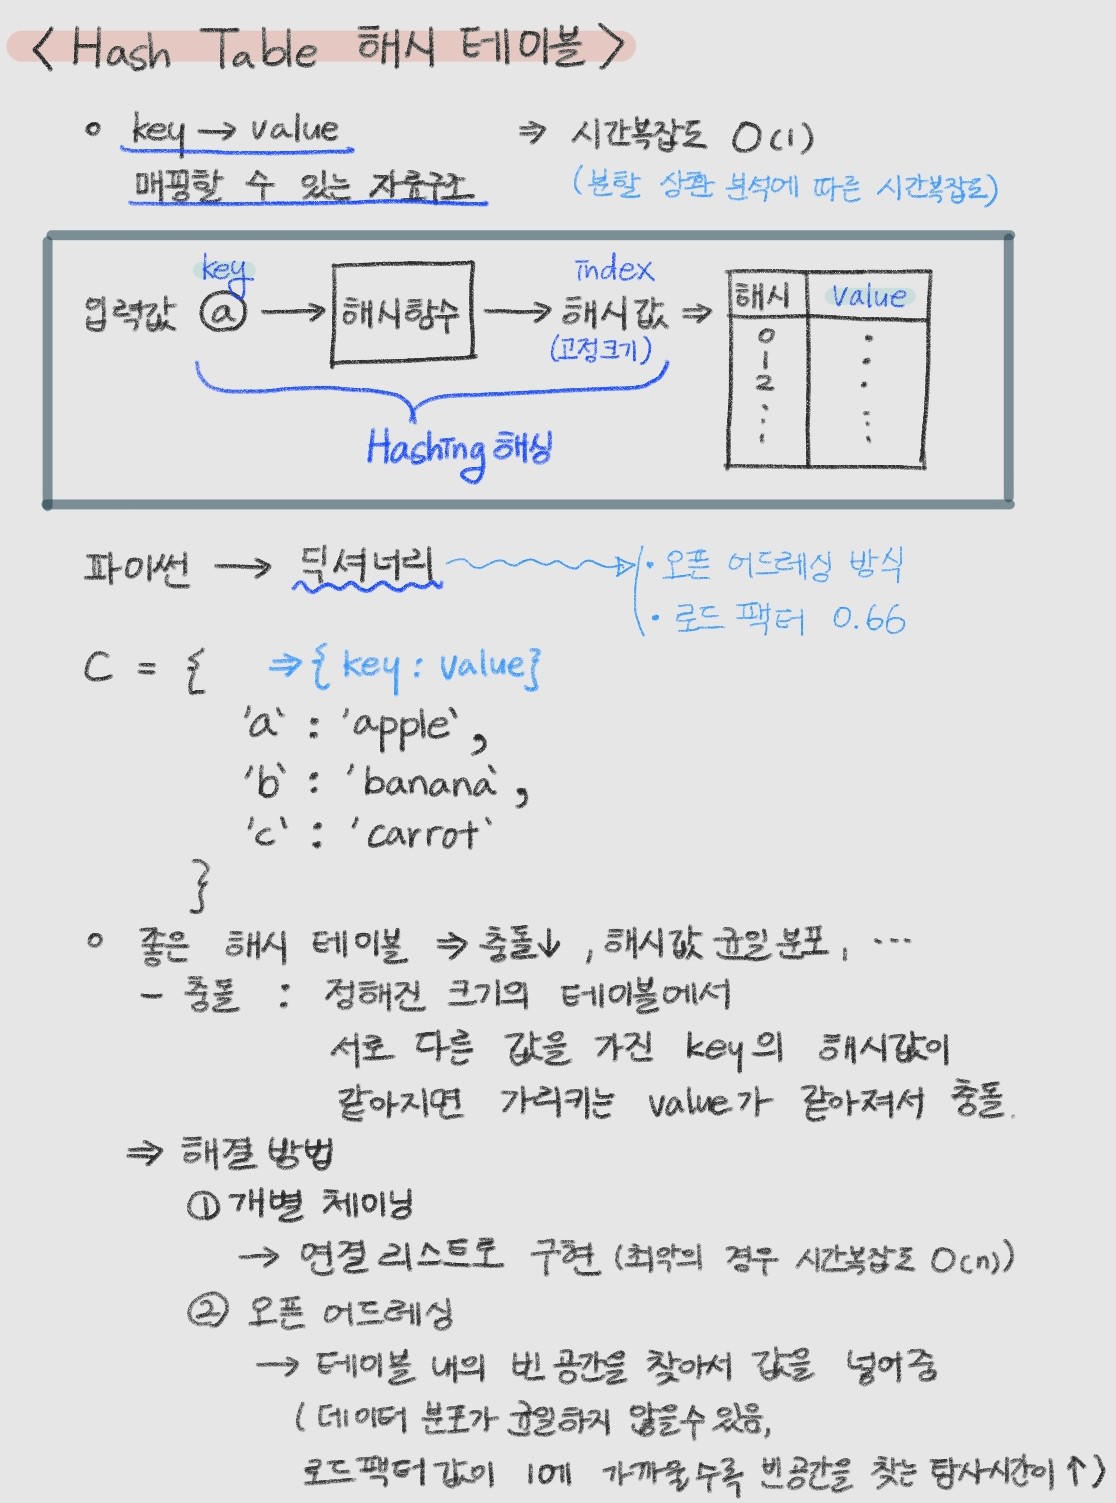 < Hash Table 해시 테이블 >
◦ key → value ⇒ 시간복잡도 O(1)
매핑할 수 있는 자료구조 (분할 상환 분석에 따른 시간복잡도)
key index
입력값 ⓐ → 해시함수 → 해시값 ⇒ 해시 value
(고정크기)
0 ·
1 ·
2 ·
⋮ ⋮
Hashing 해싱
파이썬 → 딕셔너리 · 오픈 어드레싱 방식
· 로드 팩터 0.66
C = { ⇒ { key : value }
'a` : 'apple`,
'b` : 'banana`,
'c` : 'carrot`
}
◦ 좋은 해시 테이블 ⇒ 충돌↓, 해시값 균일 분포, ...
- 충돌 : 정해진 크기의 테이블에서
서로 다른 값을 가진 key의 해시값이
같아지면 가리키는 value가 같아져서 충돌.
⇒ 해결 방법
① 개별 체이닝
→ 연결리스트로 구현 (최악의 경우 시간복잡도 O(n))
② 오픈 어드레싱
→ 테이블 내의 빈 공간을 찾아서 값을 넣어줌
( 데이터 분포가 균일하지 않을수 있음,
로드팩터 값이 1에 가까울수록 빈공간을 찾는 탐사시간이 ↑ )